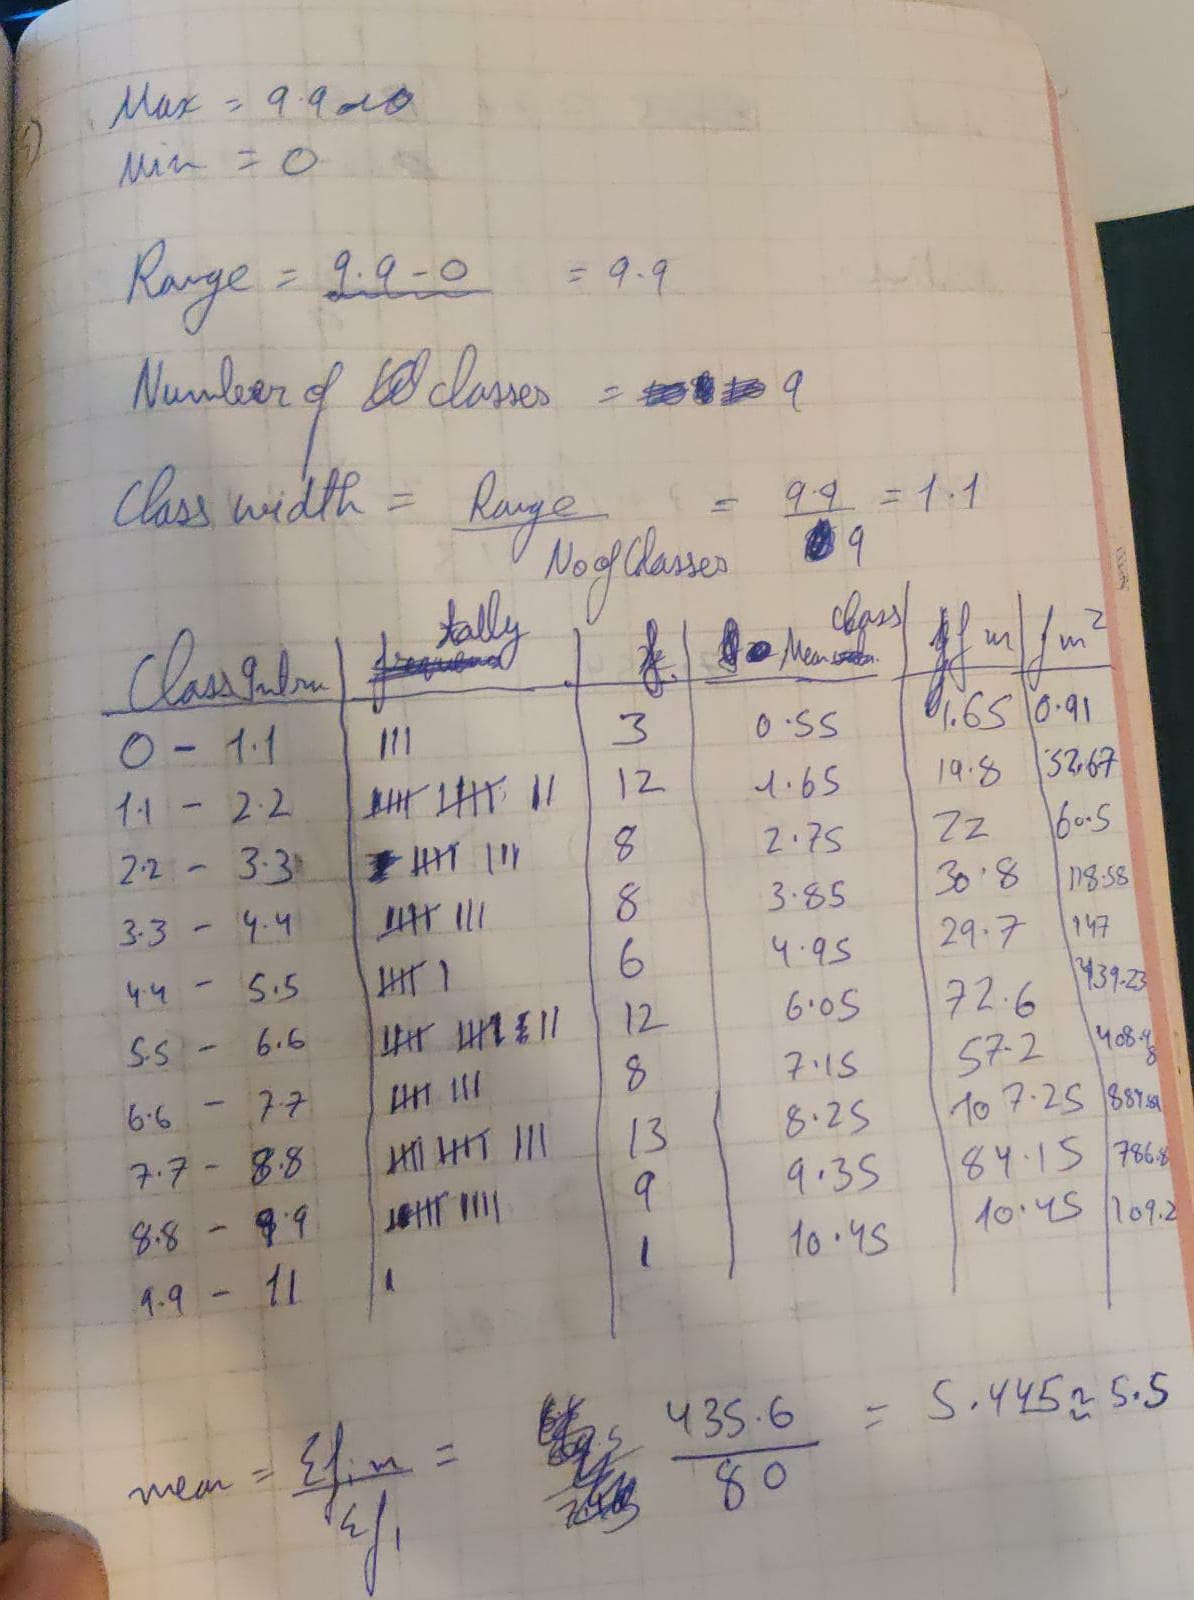 Max = 9.9 ≈10
Min = 0
Range = 9.9 - 0 = 9.9
Number of classes = 9
Class width = Range / No of Classes = 9.9 / 9 = 1.1
tally class
f. Mean fm fm²
0 - 1.1 III 3 0.55 1.65 0.91
1.1 - 2.2 IIII IIII II 12 1.65 19.8 32.67
2.2 - 3.3 IIII III 8 2.75 22 60.5
3.3 - 4.4 IIII III 8 3.85 30.8 118.58
4.4 - 5.5 IIII I 6 4.95 29.7 147
5.5 - 6.6 IIII IIII II 12 6.05 72.6 439.23
6.6 - 7.7 IIII III 8 7.15 57.2 408.98
7.7 - 8.8 IIII IIII III 13 8.25 107.25
8.8 - 9.9 IIII IIII 9 9.35 84.15 786.8
9.9 - 11 I 1 10.45 10.45 109.2
mean = Σf.m / Σf = 435.6 / 80 = 5.445 ≈ 5.5